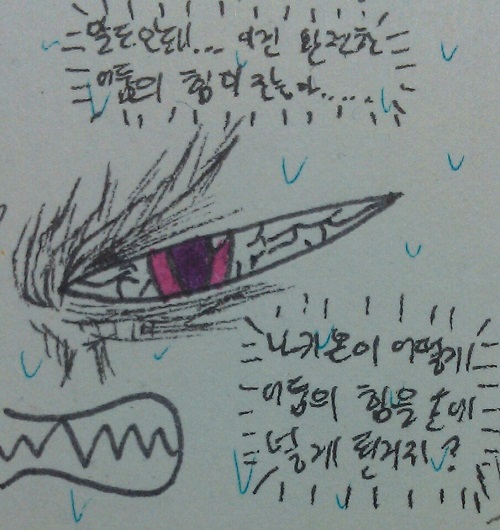 말도안돼... 이건 완전한
어둠의 힘 더 잖아.....
나카온이 어떻게
어둠의 힘을 손에
넣게 된거지?